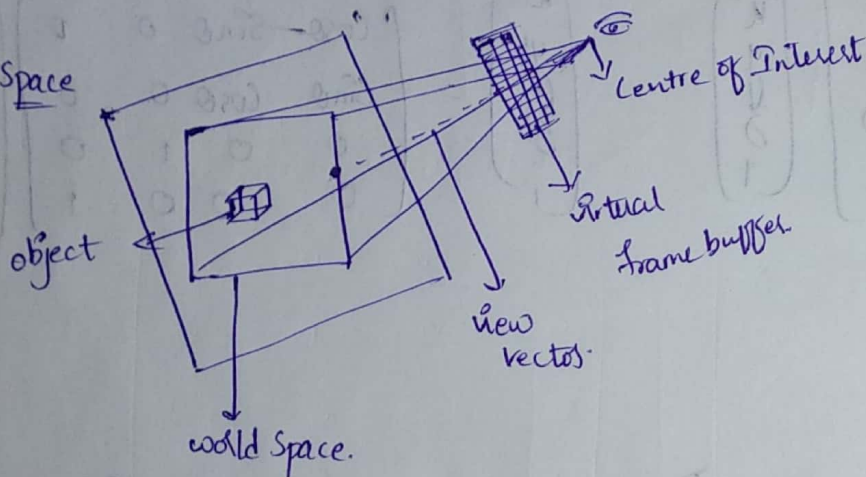 Space
Centre of Interest
virtual
frame buffer.
object
view
vector.
world Space.